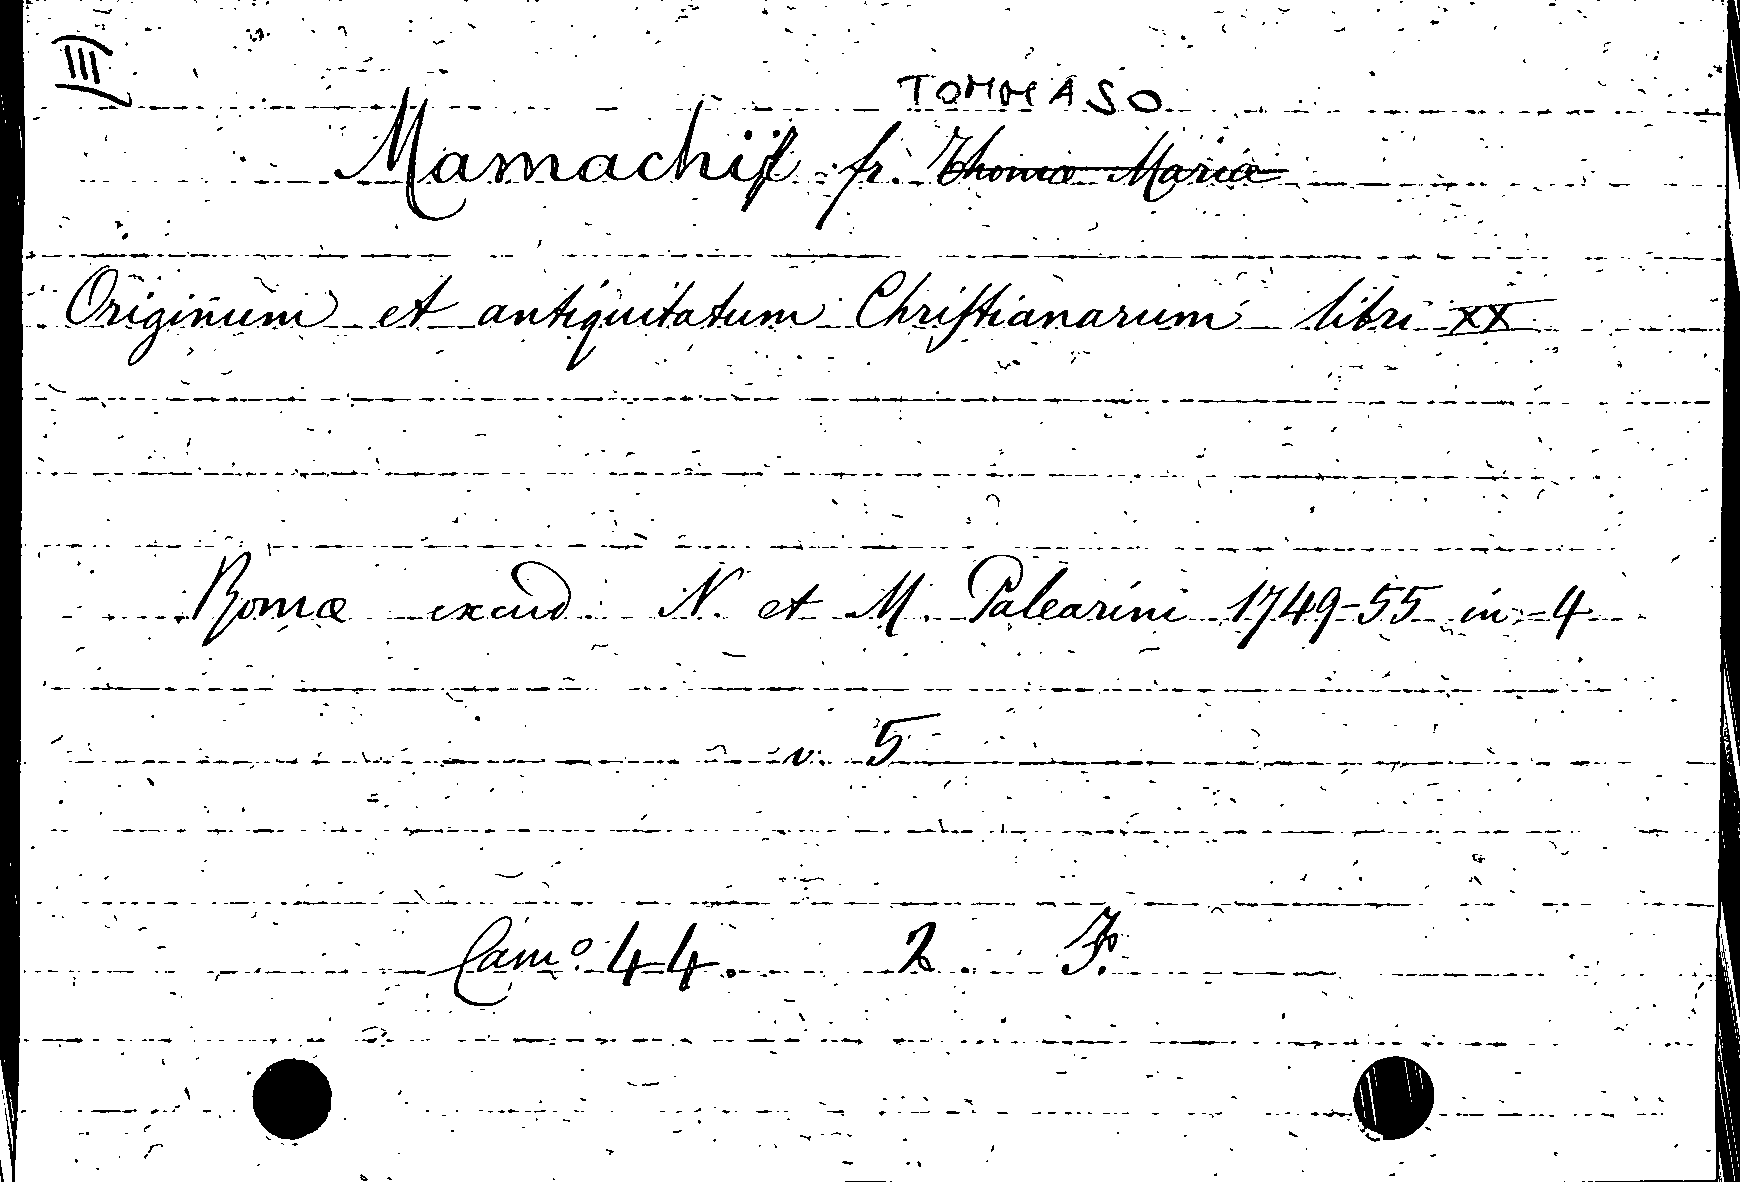 III
TOMMASO
Mamachii fr. Thomæ Maria
Originum et antiquitatum Christianarum libri XX
Romæ excud. N. et M. Palearini 1749-55 in-4
v. 5
Cam.º 44. 2. F.